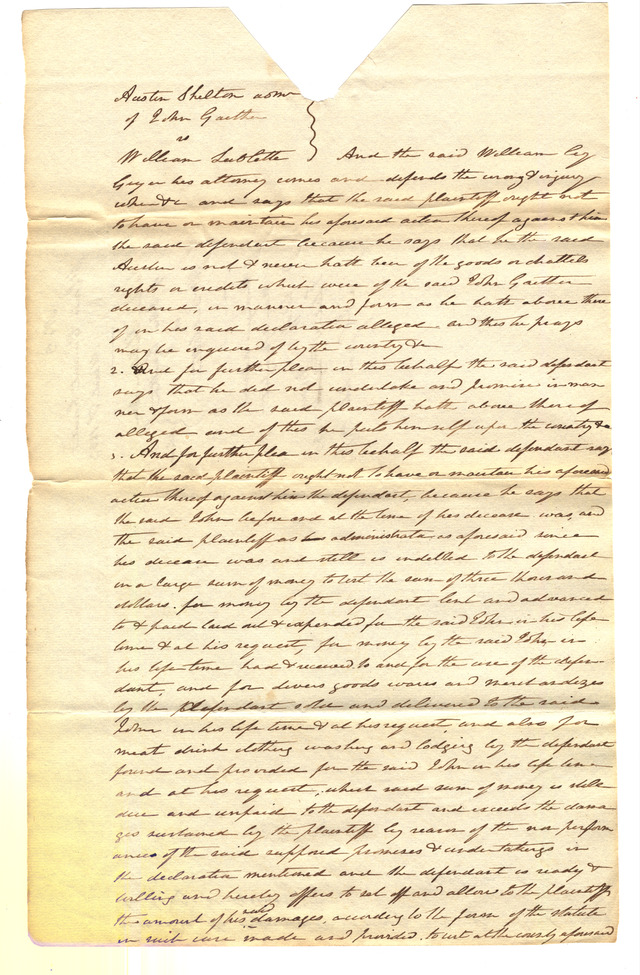 Austin Shelton admr
of John Gaither
vs
William Sublette } And the said William by
Geyer his attorney comes and defends the wrong & injury
when &c and says that the said plaintiff ought not
to have or maintain his aforesaid action thereof against him
the said defendant because he says that he the said
Austin is not & never hath been of the goods or chattels
rights or credits which were of the said John Gaither
deceased, in manner and form as he hath above there
of in his said declaration alleged and this he prays
may be enquired of by the country &c
2. And for further plea in this behalf the said defendant
says that he did not undertake and promise in man
ner & form as the said plaintiff hath above thereof
alleged and of this he puts himself upon the country &c
3. And for further plea in this behalf the said defendant say
that the said plaintiff ought not to have or maintain his aforesaid
action thereof against him the defendant, because he says that
the said John before and at the time of his decease was, and
the said plaintiff as administrator as aforesaid since
his decease was and still is indebted to the defendant
in a large sum of money to wit the sum of three thousand
dollars. for money by the defendant lent and advanced
to & paid laid out & expended for the said John in his life
time & at his request, for money by the said John in
his life time had & received to and for the use of the defen
dant, and for divers goods wares and merchandizes
by the defendant sold and delivered to the said
John in his life time & at his request, and also for
meat drink clothing washing and lodging by the defendant
found and provided for the said John in his life time
and at his request, which said sum of money is still
due and unpaid to the defendant and exceeds the dama
ges sustained by the plaintiff by reason of the non perform
ance of the said supposed promises & undertakings in
the declaration mentioned and the defendant is ready &
willing and hereby offers to set off and allow to the plaintiff
the amount of his said damages, according to the form of the statute
in such case made and provided. to wit at the county aforesaid